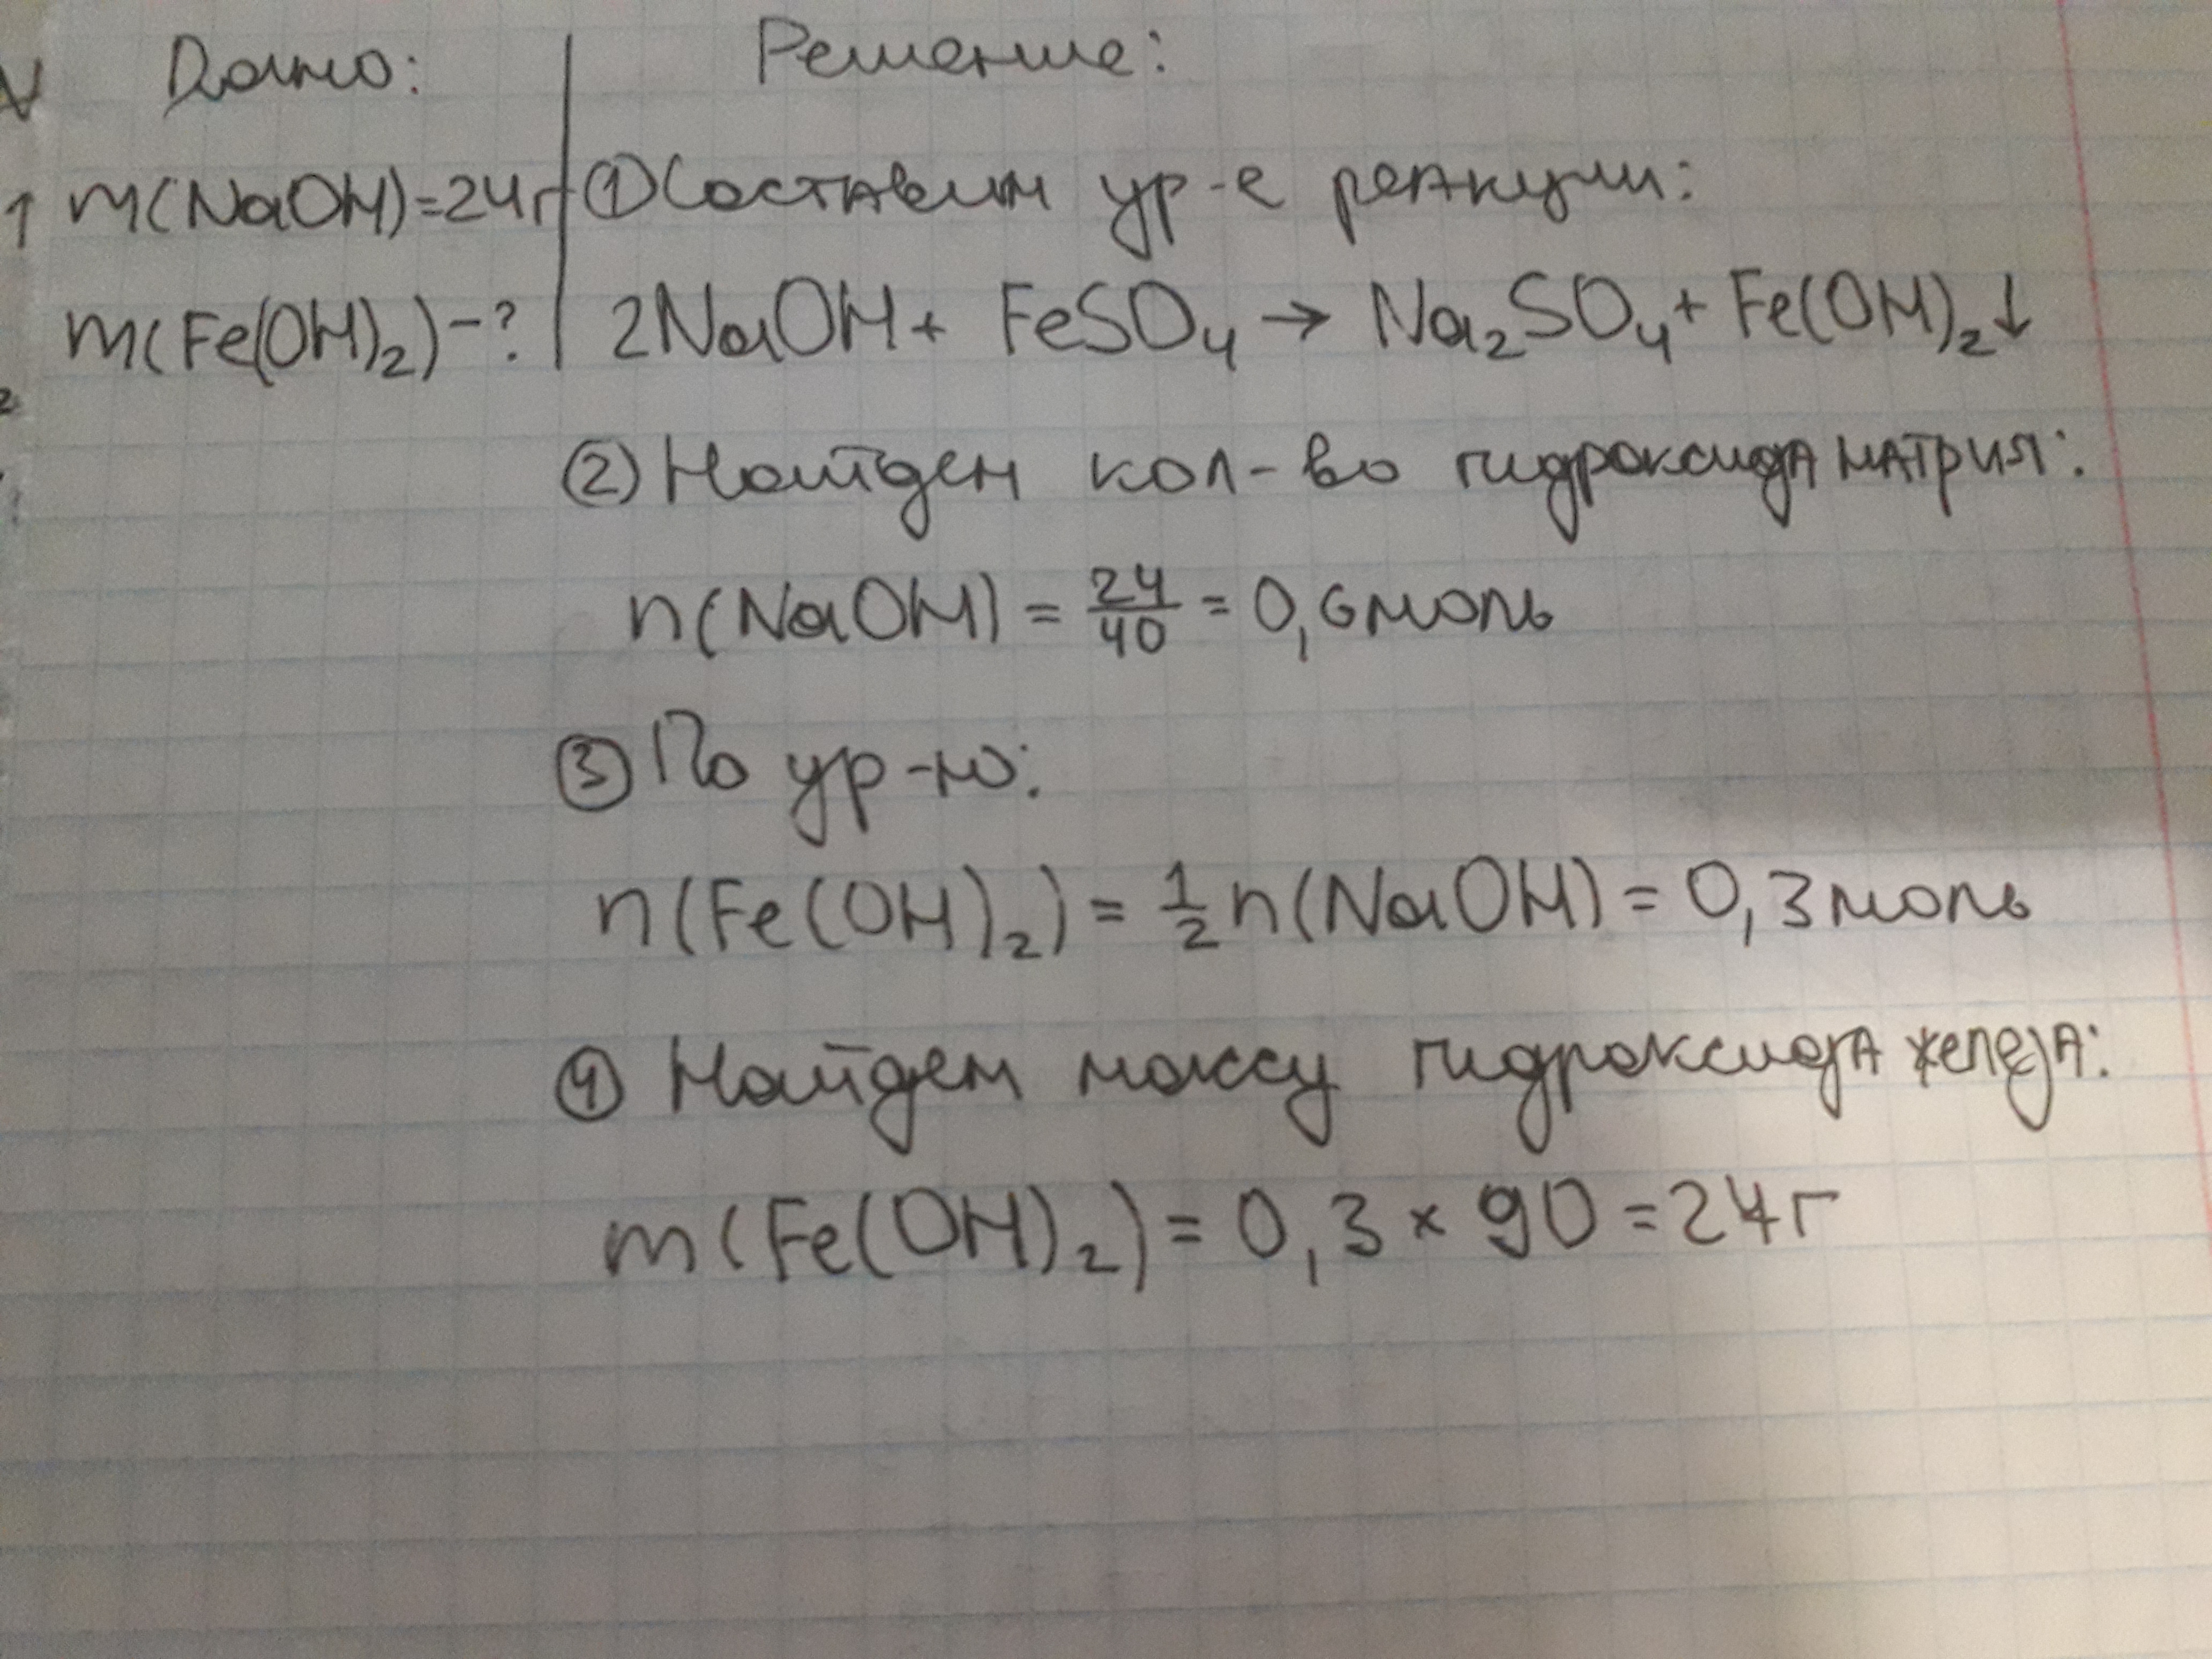 Дано:
Решение:
m(NaOH)=24г
① Составим ур-е реакции:
m(Fe(OH)₂)-?
2NaOH + FeSO₄ → Na₂SO₄ + Fe(OH)₂↓
② Найдем кол-во гидроксида натрия:
n(NaOH) = 24/40 = 0,6 моль
③ По ур-ю:
n(Fe(OH)₂) = 1/2 n(NaOH) = 0,3 моль
④ Найдем массу гидроксида железа:
m(Fe(OH)₂) = 0,3 × 90 = 24г